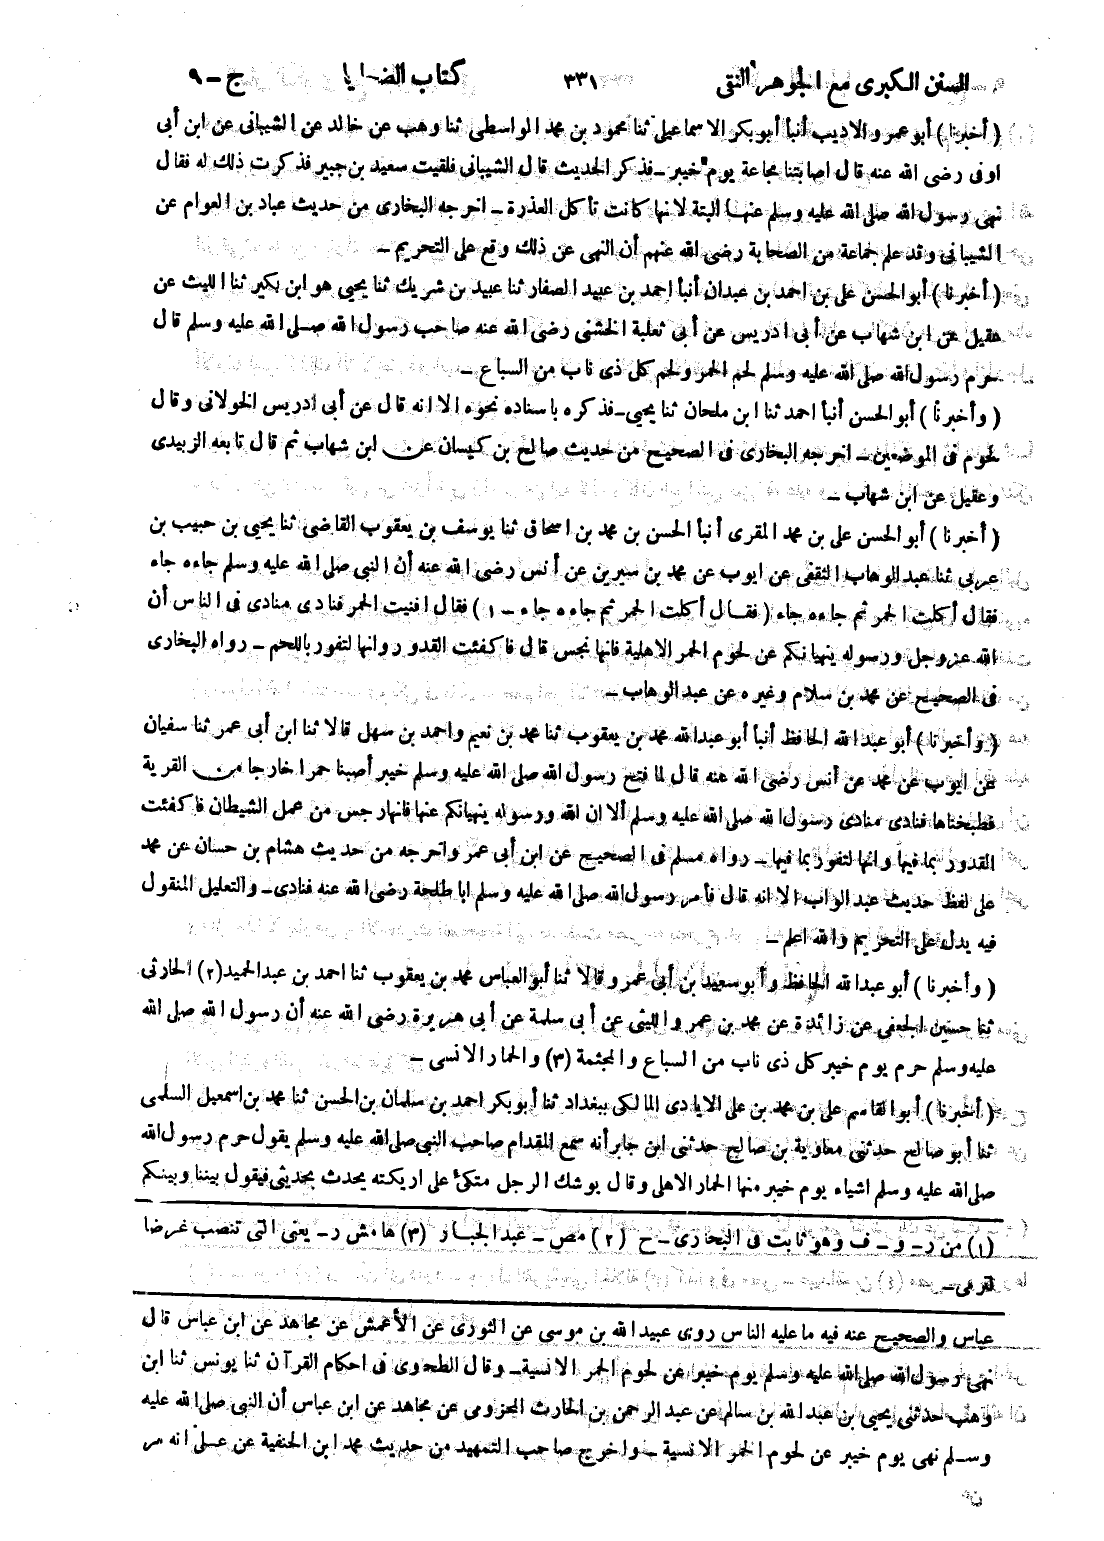 السنن الكبرى مع الجوهر النقى ٣٣١ كتاب الضحايا ج – ٩
( أخبرنا ) أبو عمرو الاديب أنبأ أبو بكر الاسماعيلى ثنا محمود بن محمد الواسطى ثنا وهب عن خالد عن الشيبانى عن ابن أبى
اوفى رضى الله عنه قال اصابتنا مجاعة يوم خيبر – فذكر الحديث قال الشيبانى فلقيت سعيد بن جبير فذكرت ذلك له فقال
نهى رسول الله صلى الله عليه وسلم عنها البتة لانها كانت تأكل العذرة – اخرجه البخارى من حديث عباد بن العوام عن
الشيبانى وقد علم جماعة من الصحابة رضى الله عنهم أن النهى عن ذلك وقع على التحريم –
( أخبرنا ) أبو الحسن على بن احمد بن عبدان أنبأ احمد بن عبيد الصفار ثنا عبيد بن شريك ثنا يحيى هو ابن بكير ثنا الليث عن
عقيل عن ابن شهاب عن أبى ادريس عن أبى ثعلبة الخشنى رضى الله عنه صاحب رسول الله صلى الله عليه وسلم قال
حرم رسول الله صلى الله عليه وسلم لحم الحمر ولحم كل ذى ناب من السباع –
( وأخبرنا ) أبو الحسن أنبأ احمد ثنا ابن ملحان ثنا يحيى – فذكره باسناده نحوه الا انه قال عن أبى ادريس الخولانى وقال
لحوم فى الموضعين – اخرجه البخارى فى الصحيح من حديث صالح بن كيسان عن ابن شهاب ثم قال تابعه الزبيدى
وعقيل عن ابن شهاب –
( أخبرنا ) أبو الحسن على بن محمد المقرى أنبأ الحسن بن محمد بن اسحاق ثنا يوسف بن يعقوب القاضى ثنا يحيى بن حبيب بن
عربى ثنا عبد الوهاب الثقفى عن ايوب عن محمد بن سيرين عن أنس رضى الله عنه أن النبى صلى الله عليه وسلم جاءه جاء
فقال أكلت الحمر ثم جاءه جاء ( فقال أكلت الحمر ثم جاءه جاء – ١ ) فقال افنيت الحمر فنادى منادى فى الناس أن
الله عزوجل ورسوله ينهيانكم عن لحوم الحمر الاهلية فانها نجس قال فاكفئت القدور وانها لتفور باللحم – رواه البخارى
فى الصحيح عن محمد بن سلام وغيره عن عبد الوهاب –
( وأخبرنا ) أبو عبد الله الحافظ أنبأ أبو عبد الله محمد بن يعقوب ثنا محمد بن نعيم واحمد بن سهل قالا ثنا ابن أبى عمر ثنا سفيان
عن ايوب عن محمد عن أنس رضى الله عنه قال لما فتح رسول الله صلى الله عليه وسلم خيبر أصبنا حمرا خارجا من القرية
فطبخناها فنادى منادى رسول الله صلى الله عليه وسلم ألا ان الله ورسوله ينهيانكم عنها فانها رجس من عمل الشيطان فاكفئت
القدور بما فيها وانها لتفور بما فيها – رواه مسلم فى الصحيح عن ابن أبى عمر واخرجه من حديث هشام بن حسان عن محمد
على لفظ حديث عبد الواب الا انه قال فأمر رسول الله صلى الله عليه وسلم ابا طلحة رضى الله عنه فنادى – والتعليل المنقول
فيه يدل على التحريم والله اعلم –
( وأخبرنا ) أبو عبد الله الحافظ وأبو سعيد بن أبى عمرو قالا ثنا أبو العباس محمد بن يعقوب ثنا احمد بن عبد الحميد (٢) الحارثى
ثنا حسين الجعفى عن زائدة عن محمد بن عمرو الليثى عن أبى سلمة عن أبى هريرة رضى الله عنه أن رسول الله صلى الله
عليه وسلم حرم يوم خيبر كل ذى ناب من السباع والمجثمة (٣) والحمار الانسى –
( أخبرنا ) أبو القاسم على بن محمد بن على الايادى المالكى ببغداد ثنا أبو بكر احمد بن سلمان بن الحسن ثنا محمد بن اسمعيل السلمى
ثنا أبو صالح حدثنى معاوية بن صالح حدثنى ابن جابر أنه سمع المقدام صاحب النبى صلى الله عليه وسلم يقول حرم رسول الله
صلى الله عليه وسلم اشياء يوم خيبر منها الحمار الاهلى وقال يوشك الرجل متكئ على اريكته يحدث بحديثى فيقول بيننا وبينكم
(١) من ر – و – ف وهو ثابت فى البخارى – ح (٢) مص – عبد الجبار (٣) هامش ر – يعنى التى تنصب غرضا
لترمى –
عباس والصحيح عنه فيه ما عليه الناس روى عبيد الله بن موسى عن الثورى عن الأعمش عن مجاهد عن ابن عباس قال
نهى رسول الله صلى الله عليه وسلم يوم خيبر عن لحوم الحمر الانسية – وقال الطحوى فى احكام القرآن ثنا يونس ثنا ابن
وهب حدثنى يحيى بن عبد الله بن سالم عن عبد الرحمن بن الحارث المخزومى عن مجاهد عن ابن عباس أن النبى صلى الله عليه
وسلم نهى يوم خيبر عن لحوم الحمر الانسية – واخرج صاحب التمهيد من حديث محمد ابن الحنفية عن على انه مر